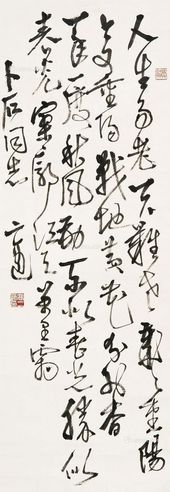 人生易老天難老歲歲重陽
今又重陽戰地黃花分外香
一年一度秋風勁不似春光勝似
春光寥廓江天萬里霜
卜石同志